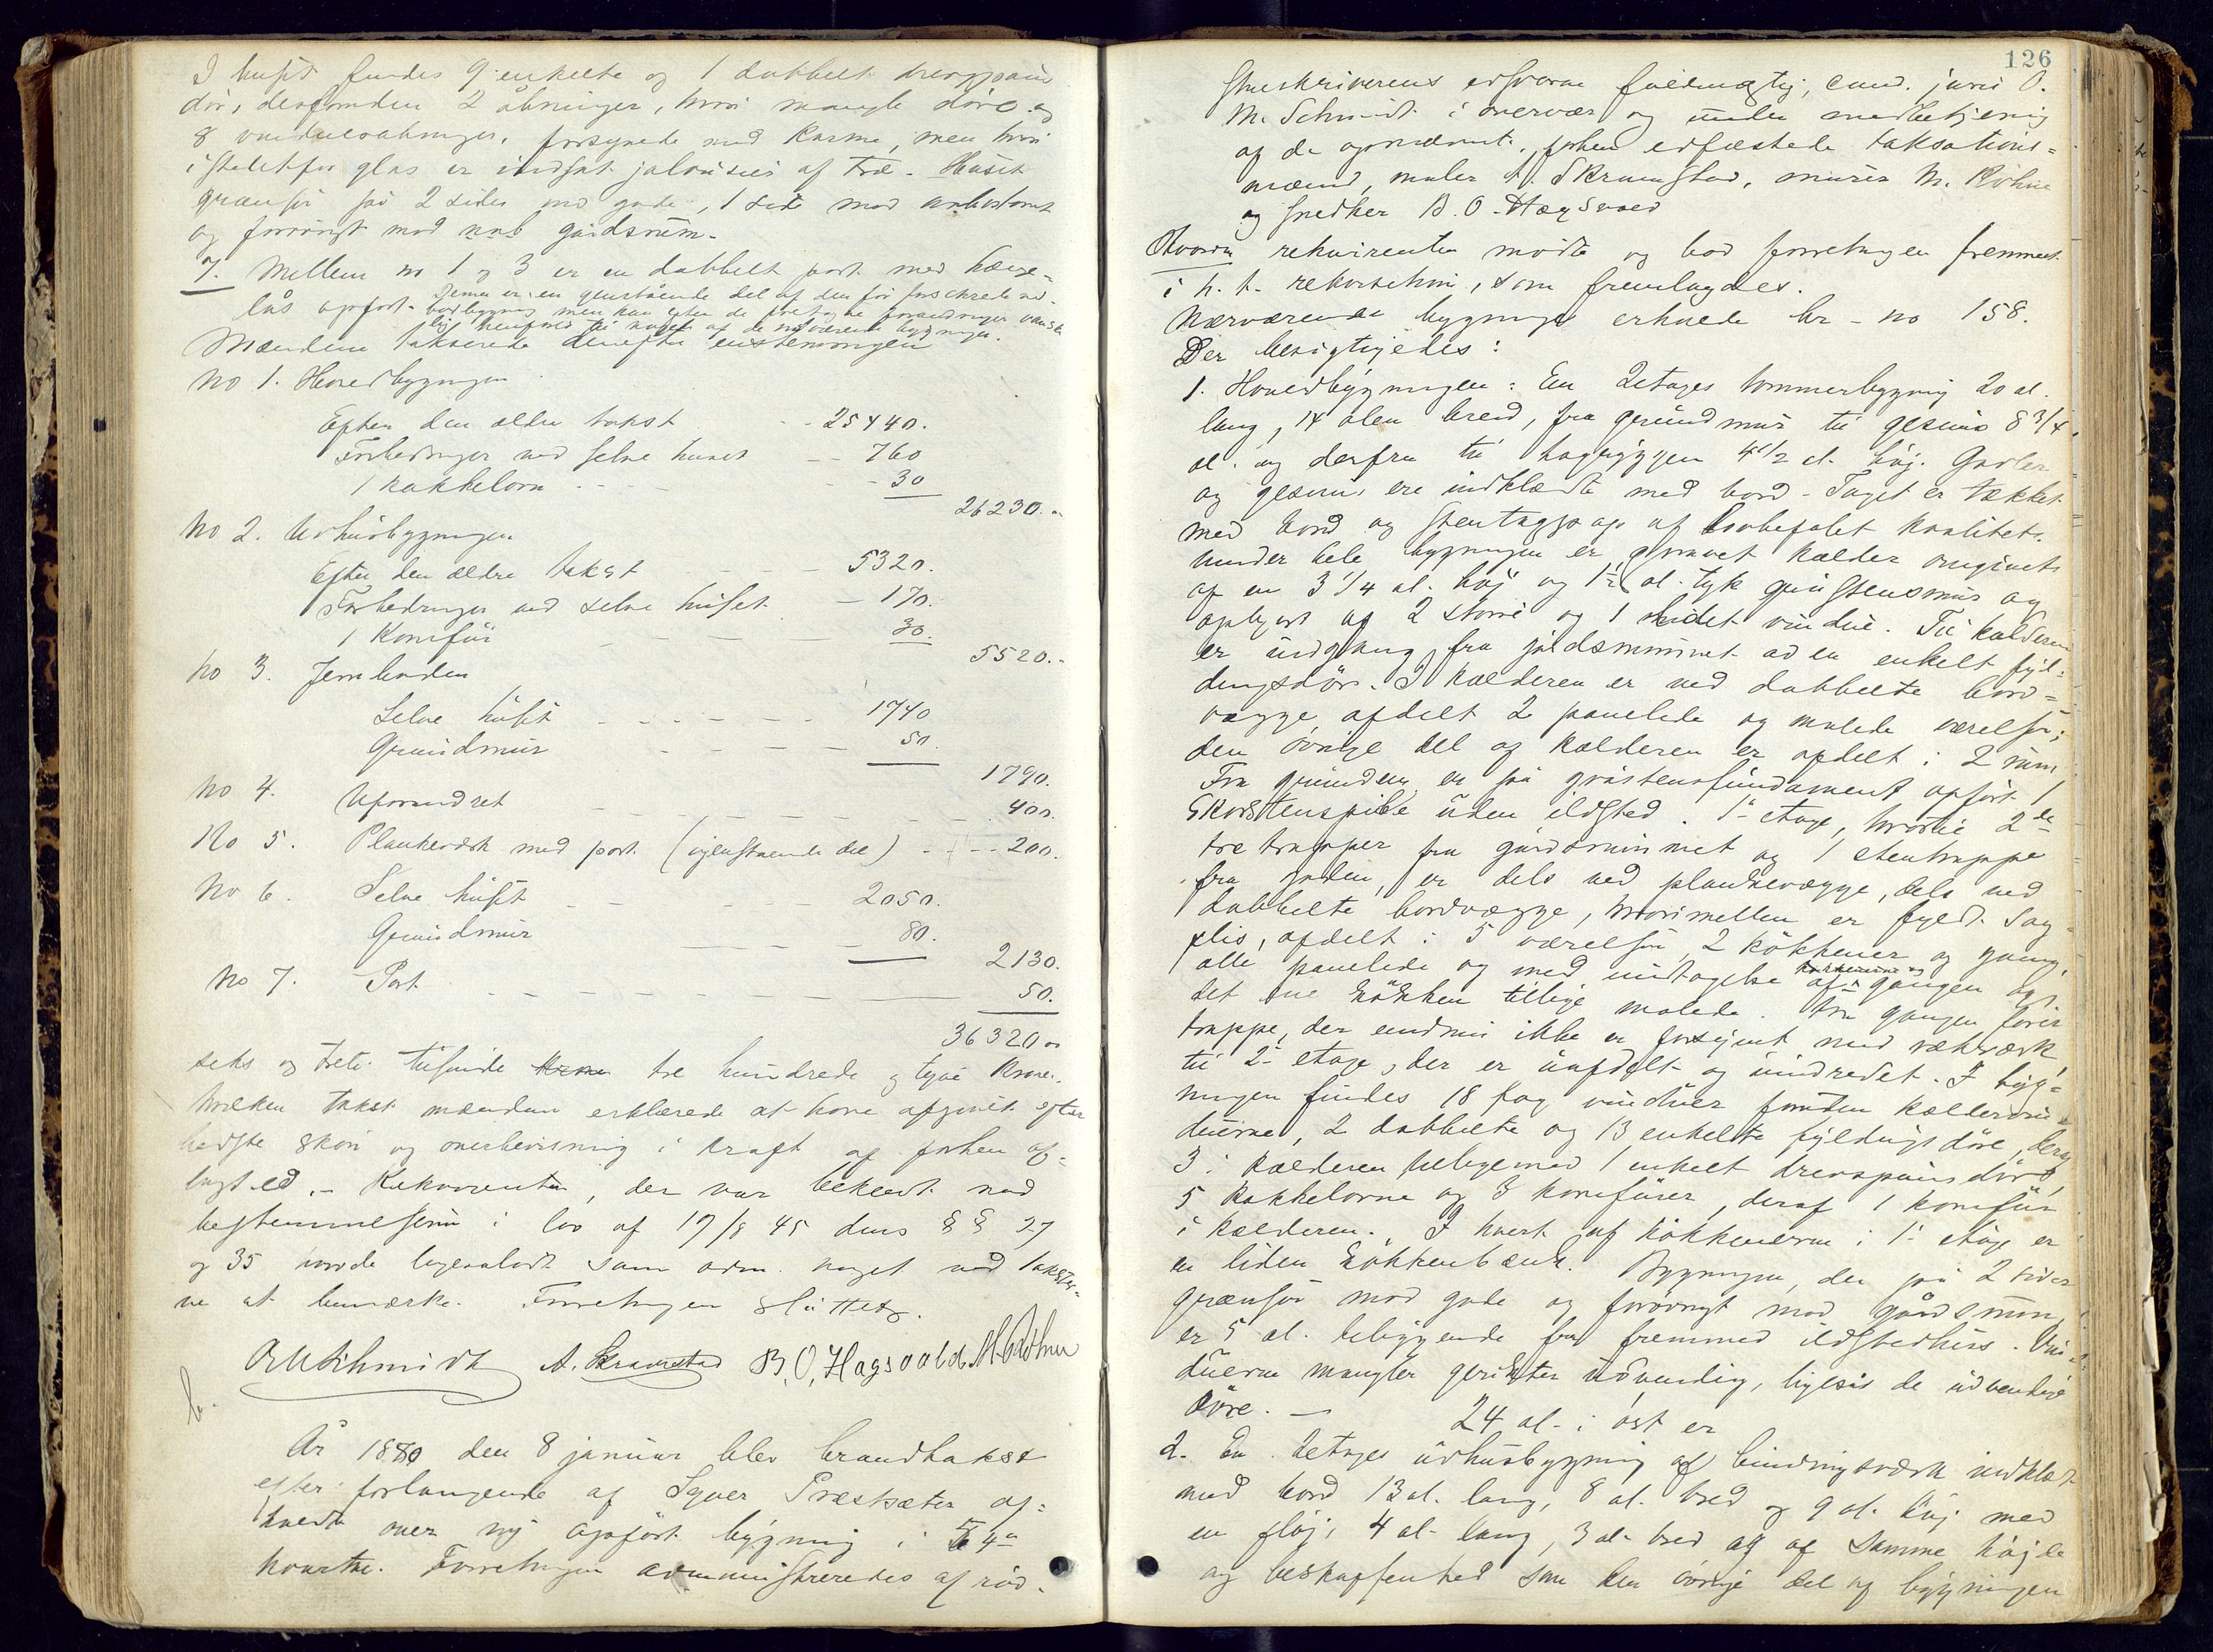 I huset findes 9 enkelte og 1 dobbelt
dör, desforuden 2 åbninger, hvori mangle döre og
8 vinduesåbninger, forsynede med karme, men hvori
istedetfor glas er indsat jalousier af træ. Huset
grænser på 2 sider mod gade, 1 side mod
og forövrigt mod gårdsrum.
7. Mellem no 1 og 3 er en dobbelt port med hænge-
lås opfört. Denne er en gjenstående del af den för
men kan efter de foretagne forandringer
til noget af de nuværende bygninger.
Mændene takserede derefter eenstemmigen
No 1. Hovedbygningen
Efter den ældre takst - 25440.
Forbedringer ved selve huset - 760
1 kakkelovn - - 30
26230.
No 2. Udhusbygningen
Efter den ældre takst - - 5320.
Forbedringer ved selve huset - 170.
1 Komfür - - 30.
5520.-
No 3. Jernboden
Selve huset - - - 1740
Grundmür - - - 50.
1790.
No 4. Uforandret - - - 400.
No 5. Plankeværk med port (gjenstaaende del) - - 200.
No 6. Selve huset - - - 2050.
Grundmür - - - 80.
2130.
No 7. Port - - - 50.
36320
seks og treti tusinde tre hundrede og tyve Kroner,
hvilken takst mændene erklærede at have afgivet efter
bedste skön og overbevisning i kraft af forhen af-
lagt ed. - Rekvirenten, der var bekjendt med
bestemmelserne i lov af 19/8 45 dens §§ 27
og 35 havde ligesaalidt som adm. noget ved takster-
ne at bemærke. Forretningen sluttet.
O M Schmidt A. Skramstad B. O. Hagsvold M. Köhn
År 1880 den 8 januar blev brandtakst
efter forlangende af Syver Præstsæter af-
holdt over ny opfört bygning i 4de
kvartal. Forretningen administreredes af sod-
126
skriverens edsvorne fuldmægtig, cand. juris O.
M. Schmidt i overvær og under medbetjening
af de opnævnte, forhen edfæstede taksations-
mænd, maler A. Skramstad, murer M. Köhn
og snedker B. O. Hagsvold
Hvorda rekvirenten mödte og bad forretningen fremmet
i h. t. rekvisition, som fremlagdes.
Nærværende bygninger erholdt br-no 158.
Der besigtigedes:
1. Hovedbygningen: En 2etages tömmerbygning 20 al.
lang, 14 alen bred, fra grundmur til gesims 8 3/4
al. og derfra til tagryggen 4 1/2 al. höj. Gavler
og gesims ere indklædte med bord. Taget er tækket
med bord og stentagpap af lovbefalet kvalitet.
Under hele bygningen er gravet kælder omgivet
af en 3 1/4 al. höj og 1 1/2 al. tyk gråstensmür og
oplyst af 2 större og 1 lidet vindu. Til kælderen
er indgang fra gårdsrummet ad en enkelt fyl-
dingsdör. I kælderen er ved dobbelte bord-
vægge afdelt 2 panelede og malede værelser;
den övrige del af kælderen er afdelt i 2 rum
Fra grunden er på gråstensfundament opfört 1
skorstenspibe uden ildsted. 1te etage, hvortil 2de
trætrapper fra gårdsrummet og 1 stentrappe
fra gaden, er dels ved plankevægge, dels ved
dobbelte bordvægge, hvorimellem er fyldt sag-
flis, afdelt i 5 værelser, 2 kökkener og gang,
alle panelede og med undtagelse af gangen og
det ene kökken tillige malede. Fra gangen förer
trappe, der endnu ikke er forsynet med rækværk
til 2de etage, der er uafdelt og uindredet. I byg-
ningen findes 18 fag vinduer foruden kældervin-
duerne, 2 dobbelte og 13 enkelte fyldingsdöre, deraf
3 i kælderen tilligemed 1 enkelt
5 kakkelovne og 3 komfürer, deraf 1 komfür
i kælderen. I hvert af kökkenerne i 1te etage er
en liden kökkenbænk. Bygningen, der på 2 sider
grænser mod gade og forövrigt mod gårdsrum,
er 5 al. beliggende fra fremmed ildstedhus. Vin-
duerne mangler gerikter udvendig, ligeså de udvendige
döre. —
24 al. i öst er
2. En 2etages udhusbygning af bindingsværk indklædt
med bord 13 al. lang, 8 al. bred og 9 al. höj med
en flöj, 4 al. lang, 3 al. bred og af samme höjde
og beskaffenhed som den övrige del af bygningen